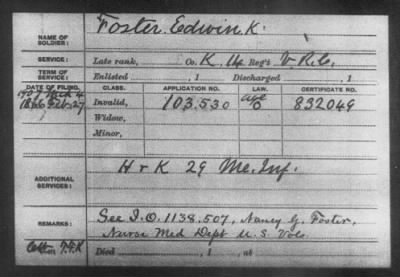 NAME OF SOLDIER: Foster, Edwin K.
SERVICE: Late rank, Co. K, 14 Reg't V.R.C.
TERM OF SERVICE: Enlisted , 1 Discharged , 1
DATE OF FILING. CLASS. APPLICATION NO. LAW. CERTIFICATE NO.
1907 Mch 4
1866 Feb. 27 Invalid, 103.530 832049
Widow,
Minor,
ADDITIONAL SERVICES: H & K 29 Me. Inf.
REMARKS: See I.O. 1138.507, Nancy G. Foster,
Nurse Med Dept U.S. Vols
Died , 1 , at